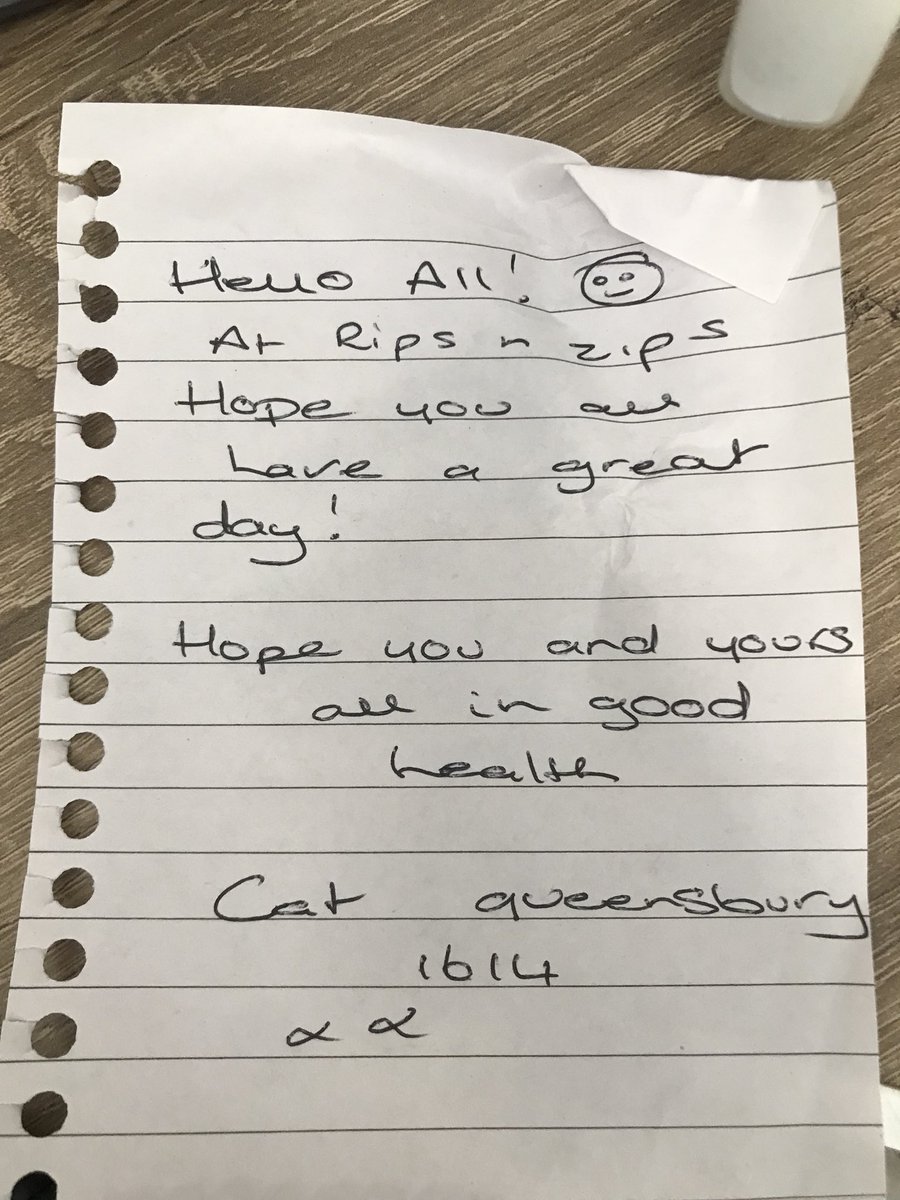 Hello All!
At Rips n zips
Hope you all
have a great
day!
Hope you and yours
all in good
health
Cat queensbury
1614
x x